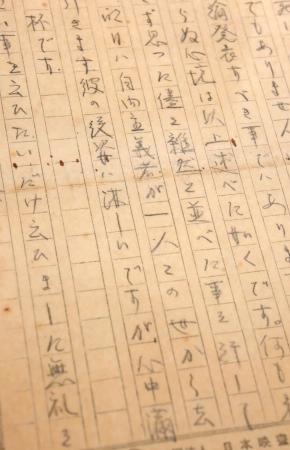 でもありません
論発表すべき事ではありま
らぬ心境は以上述べた如くです。何も
ず思つた儘を雑然と並べた事を許して
明日は自由主義者が一人この世から去
きます彼の後姿は淋しいですが、心中満
杯です。
い事を云ひたいだけ云ひました無礼を
日本映画